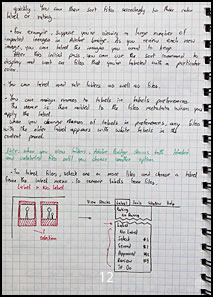 quickly. You can then sort files according to their color
label or rating.
• For example, suppose you're viewing a large number of
imported images in Adobe Bridge. As you review each new
image, you can label the images you want to keep.
After this initial pass, you can use the Sort command to
display and work on files that you've labeled with a particular
color.
• You can label and rate folders as well as files.
• You can assign names to labels in Labels preferences.
The name is then added to the file's metadata when you
apply the label.
When you change names of labels in preferences, any files
with the older label appears with white labels in the
content panel.
Note: When you view folders, Adobe Bridge shows both labeled
and unlabeled files until you choose another option.
• To label files, select one or more files and choose a label
from the Label menu. To remove labels from files,
Label > No Label
selection
View Stacks Label Tools Window Help
Rating
No Rating
Label
No Label
Select
Second
Approved
Review
To Do
12